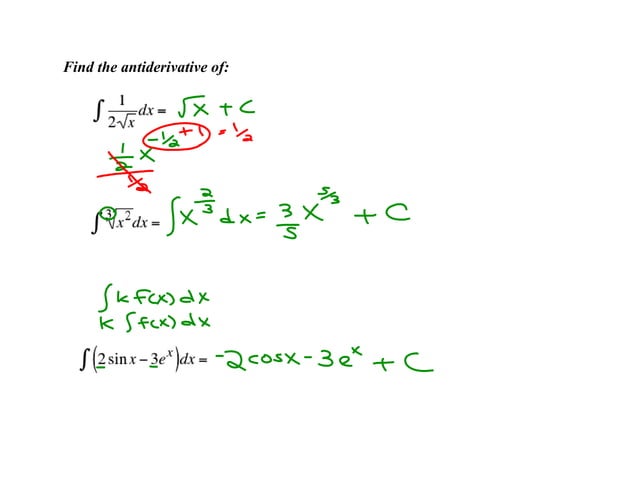 Find the antiderivative of:
∫ 1/(2√x) dx = √x + C
1/2 x^(-1/2 + 1 = 1/2)
1/2
∫ ∛(x²) dx = ∫ x^(2/3) dx = 3/5 x^(5/3) + C
∫ k f(x) dx
k ∫ f(x) dx
∫ (2 sin x − 3e^x) dx = -2 cos x - 3e^x + C